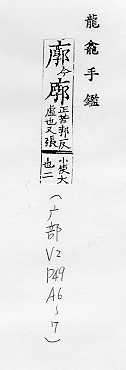 龍龕手鑑
廓今廓正苦郭反
虛也又張
小使大
也二
(广部 V2 P49 A6~7)